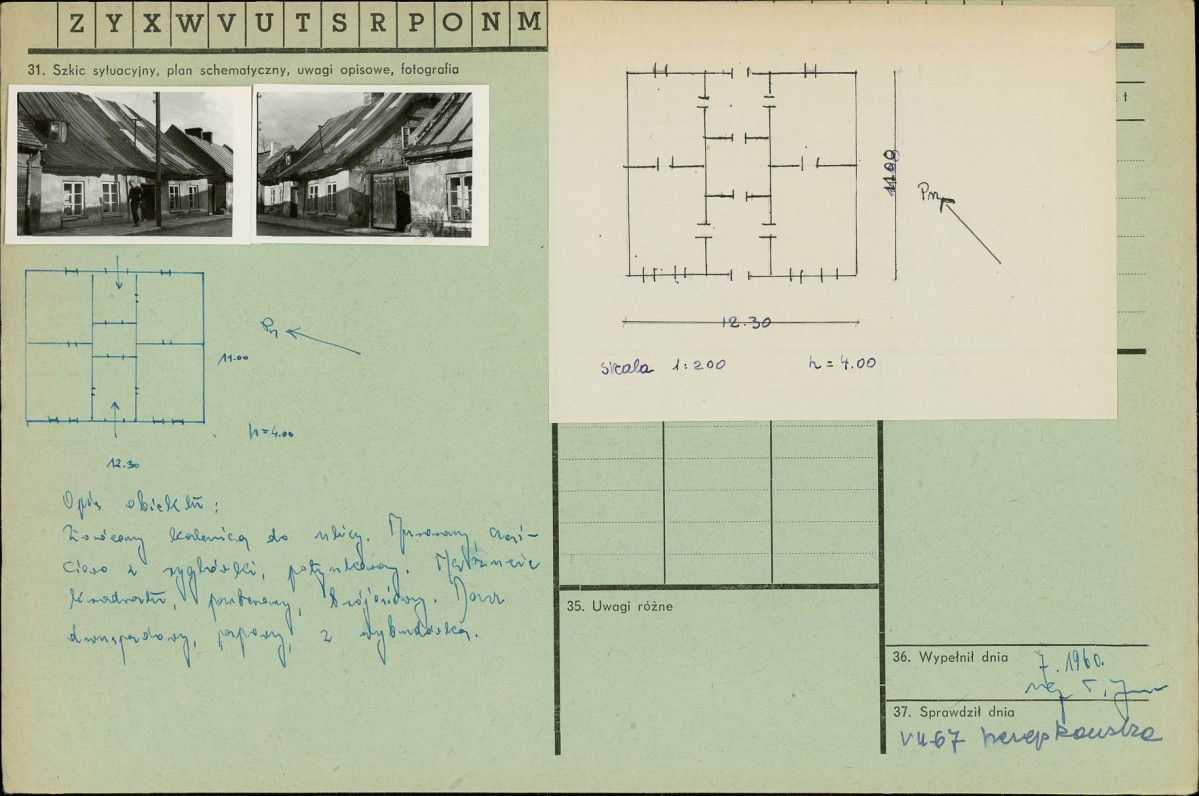 Z Y X W V U T S R P O N M
31. Szkic sytuacyjny, plan schematyczny, uwagi opisowe, fotografia
11.00
Pn
12.30
skala 1:200 h = 4.00
Pn
11.00
h = 4.00
12.30
Opis obiektu:
Zwrócony kalenicą do ulicy. Murowany, częś-
ciowo z
kwadratu, parterowy, Dach
dwuspadowy, papowy, z wybudówką.
35. Uwagi różne
36. Wypełnił dnia 7. 1960.
mgr
37. Sprawdził dnia
VII 67